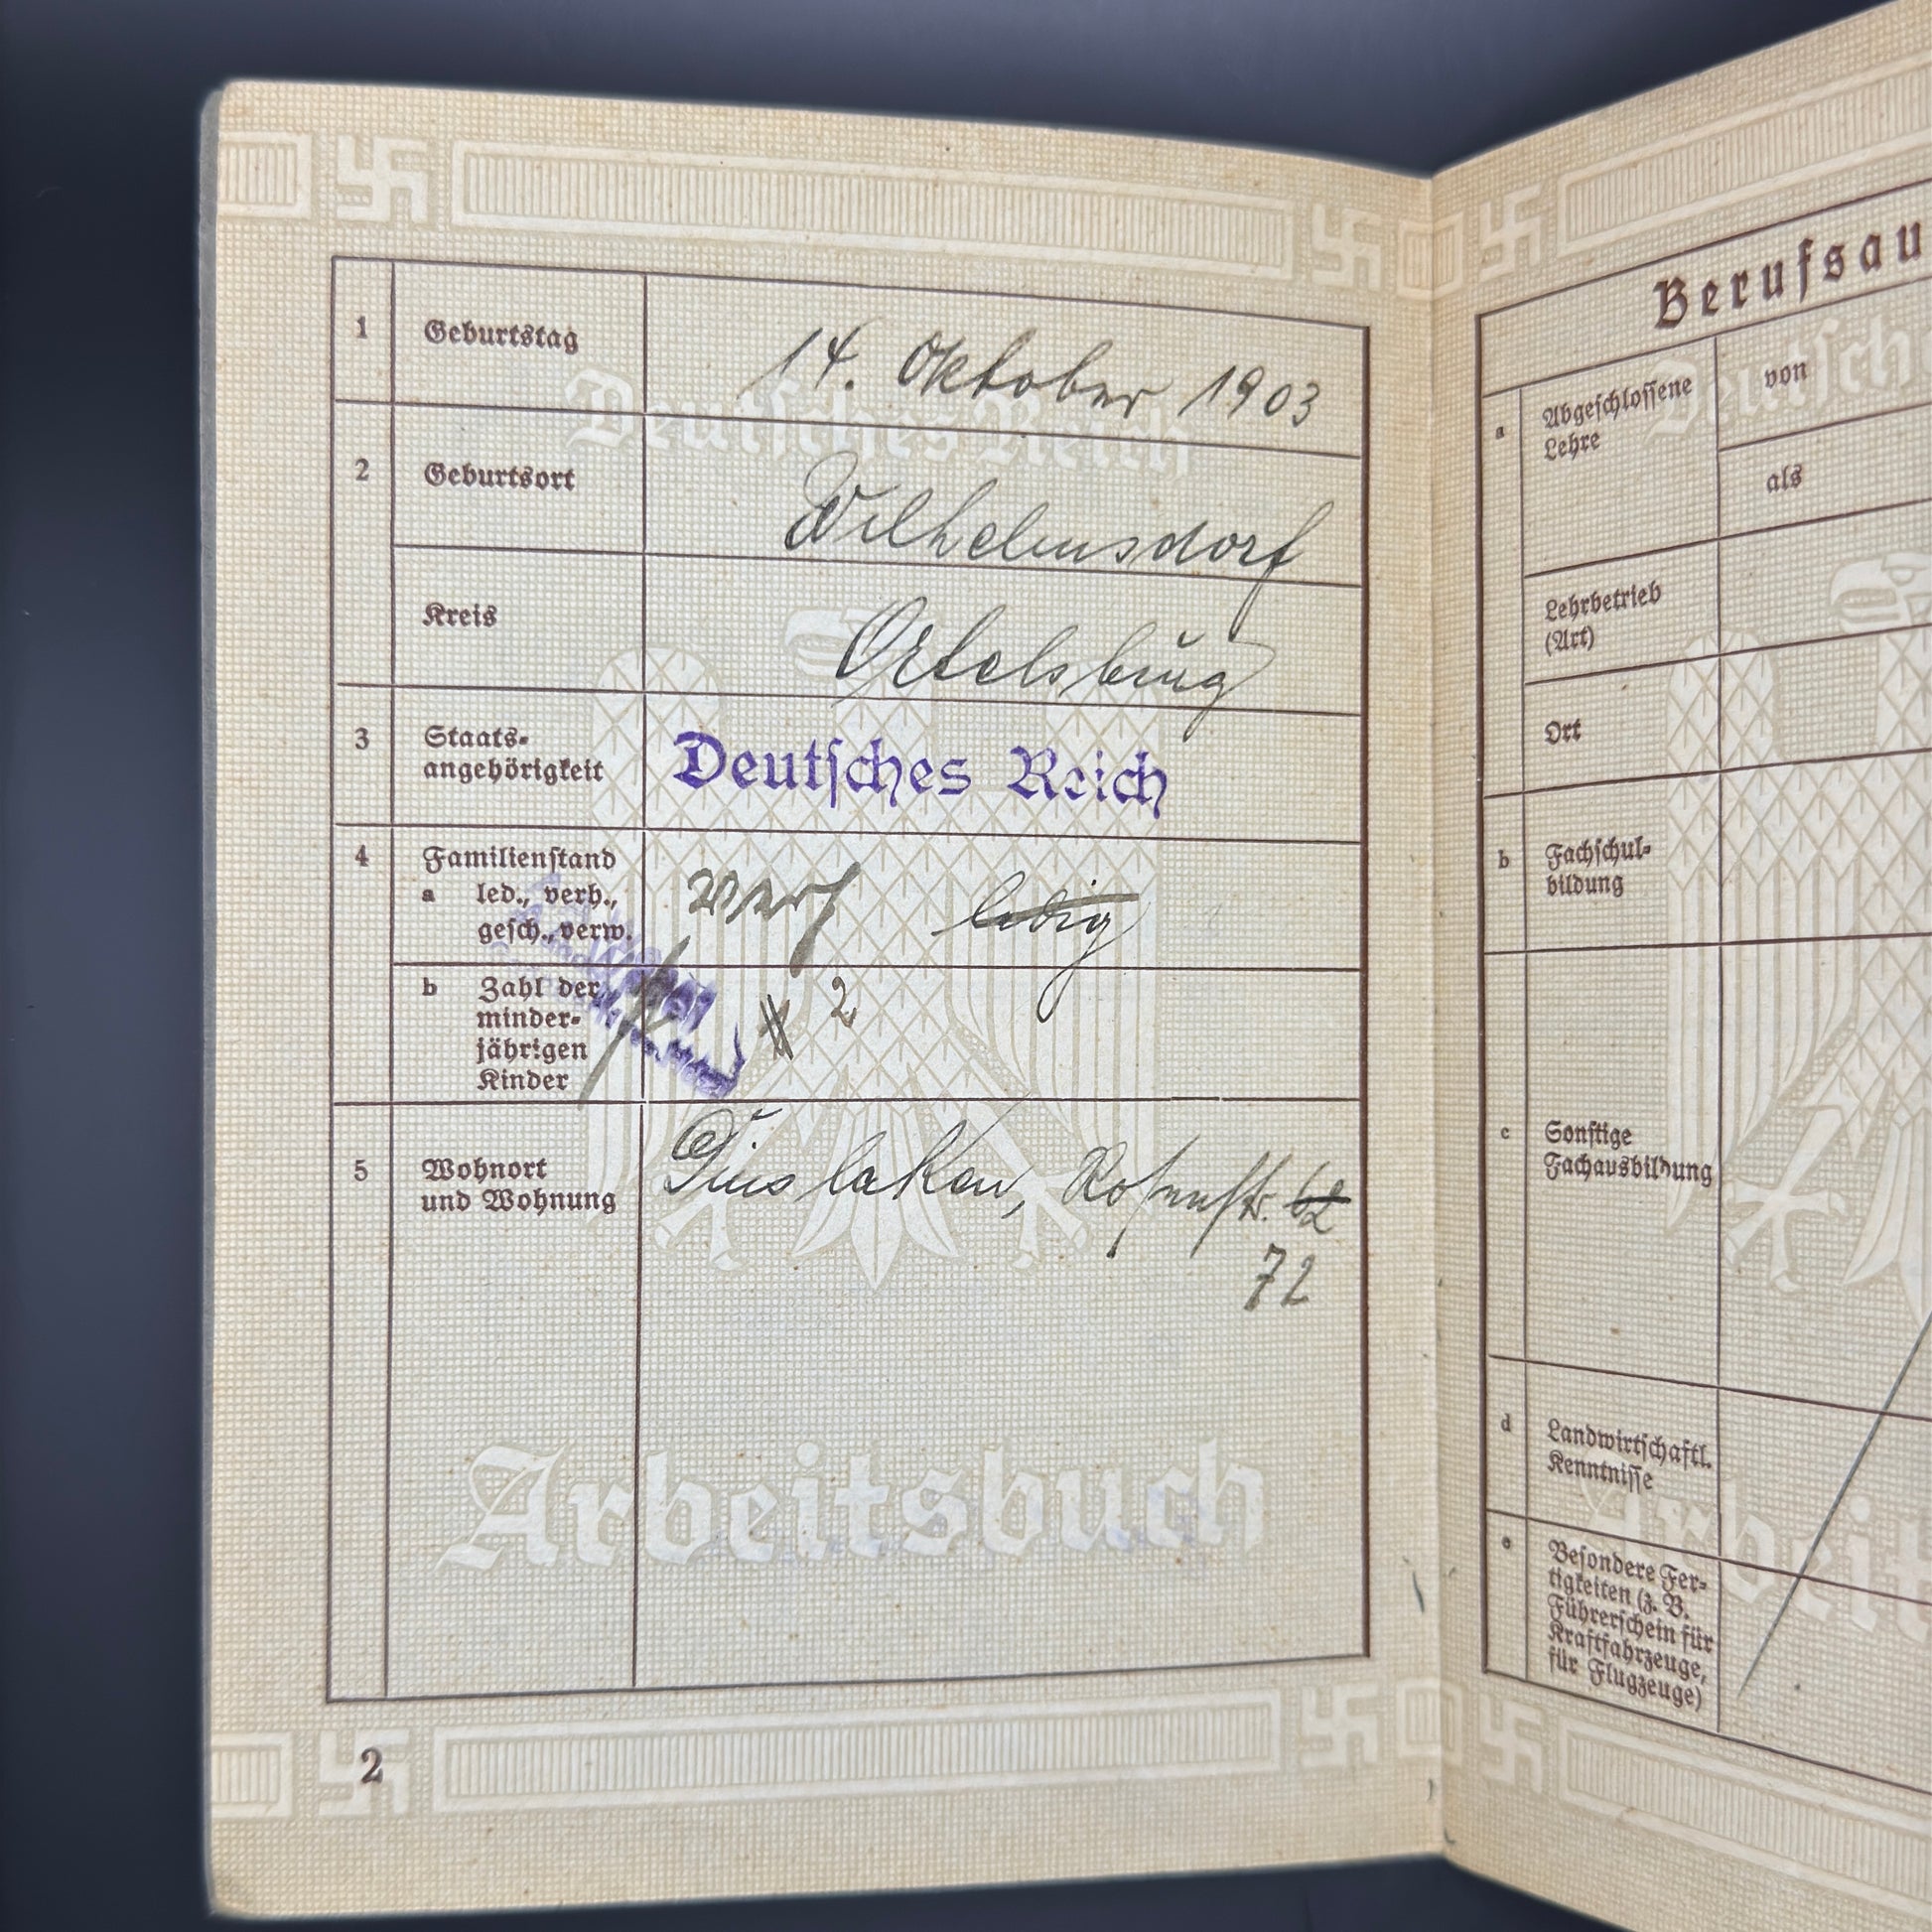 1 Geburtstag 14. Oktober 1903
Deutsches Reich
2 Geburtsort Wilhelmsdorf
Kreis Ortelsburg
3 Staats-
angehörigkeit Deutsches Reich
4 Familienstand
a led., verh.,
gesch., verw. verh ledig
b Zahl der
minder-
jährigen
Kinder 2
5 Wohnort
und Wohnung Dinslaken, Rosenstr. 62
72
Arbeitsbuch
2
Berufsau
Deutsch
a Abgeschlossene
Lehre
von
als
Lehrbetrieb
(Art)
Ort
b Fachschul-
bildung
c Sonstige
Fachausbildung
d Landwirtschaftl.
Kenntnisse
e Besondere Fer-
tigkeiten (z. B.
Führerschein für
Kraftfahrzeuge,
für Flugzeuge)
Arbeit